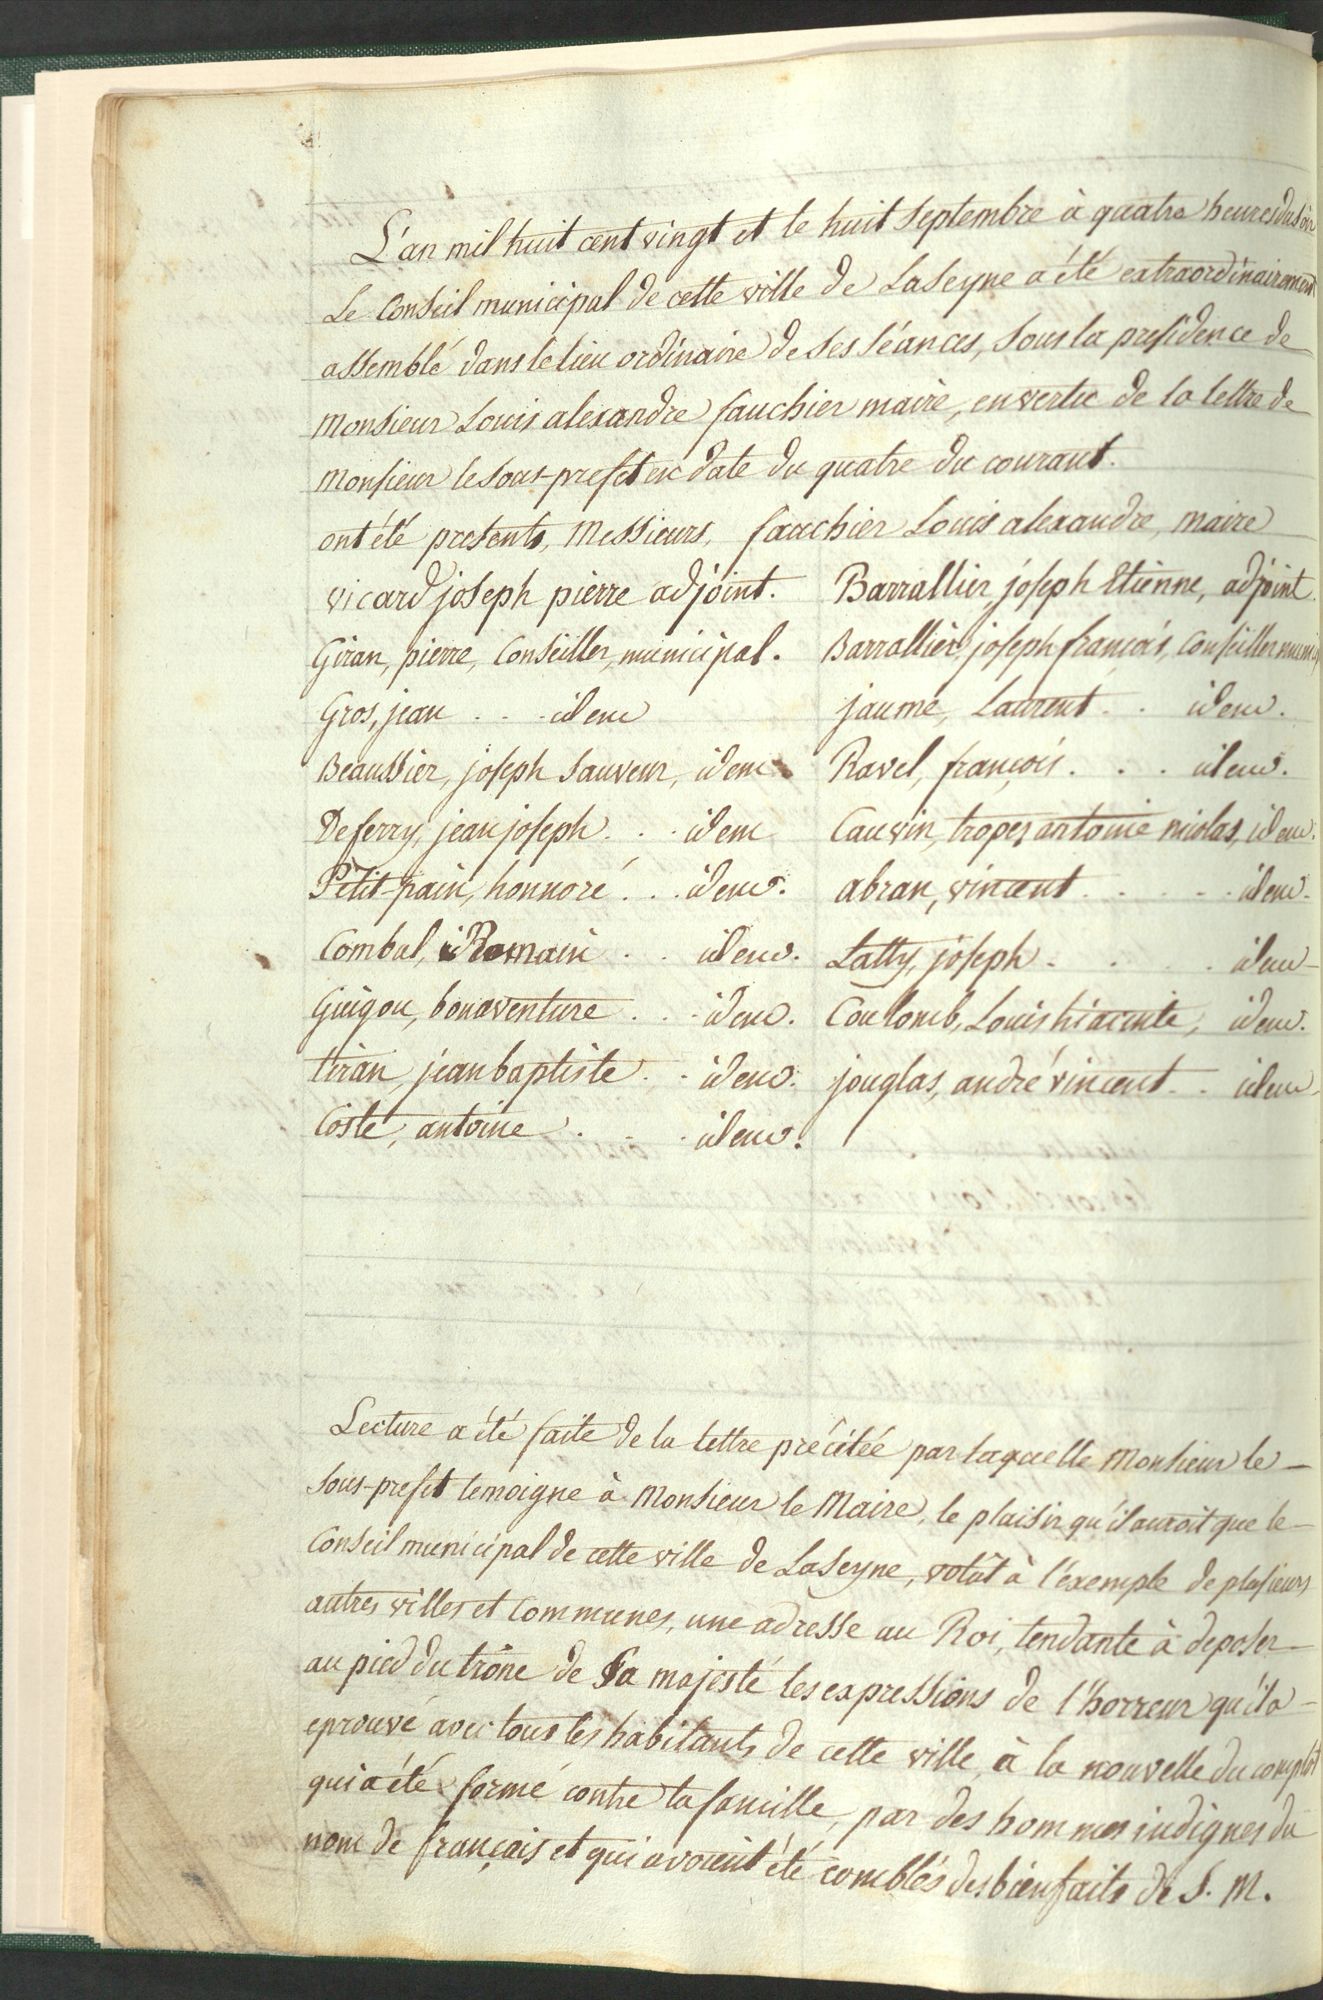 L'an mil huit cent vingt et le huit Septembre à quatre heures du soir
Le Conseil municipal de cette ville de LaSeyne a été extraordinairement
assemblé dans le lieu ordinaire de ses Séances, Sous la presidence de
Monsieur Louis alexandre fauchier maire, en vertu de la lettre de
Monsieur le Sous-prefet en date du quatre du courant.
ont été presents, Messieurs, fauchier Louis alexandre, maire
vicard joseph pierre adjoint. Barrallier, joseph Etienne, adjoint.
Giran, pierre, Conseiller, municipal. Barrallier, joseph françois, Conseiller
Gros, jean . . . idem jaume, Laurent . . idem.
Beaussier, joseph Sauveur, idem Ravel, françois . . . idem.
Deferry, jean joseph . . . idem Cauvin, tropez antoine nicolas, idem.
Petit-pain, honnoré . . . idem. abran, vincent . . . . . idem.
Combal, Romain . . idem. Latty, joseph . . . . idem
Guigou, bonaventure . . . idem. Coulomb, Louis hiacinte, idem.
tiran, jean baptiste . . idem. jouglas, andré vincent . . idem
Coste, antoine . . . idem.
Lecture a été faite de la lettre précitée par laquelle Monsieur le
Sous-prefet temoigne à Monsieur le Maire, le plaisir qu'il auroit que le
Conseil municipal de cette ville de LaSeyne, votât à l'exemple de plusieurs
autres villes et Communes, une adresse au Roi, tendante à deposer
au pied du trône de Sa majesté les expressions de l'horreur qu'il a
eprouvé avec tous les habitants de cette ville, à la nouvelle du complot
qui a été formé contre sa famille, par des hommes indignes du
nom de français et qui avoient été comblés des bienfaits de S. M.